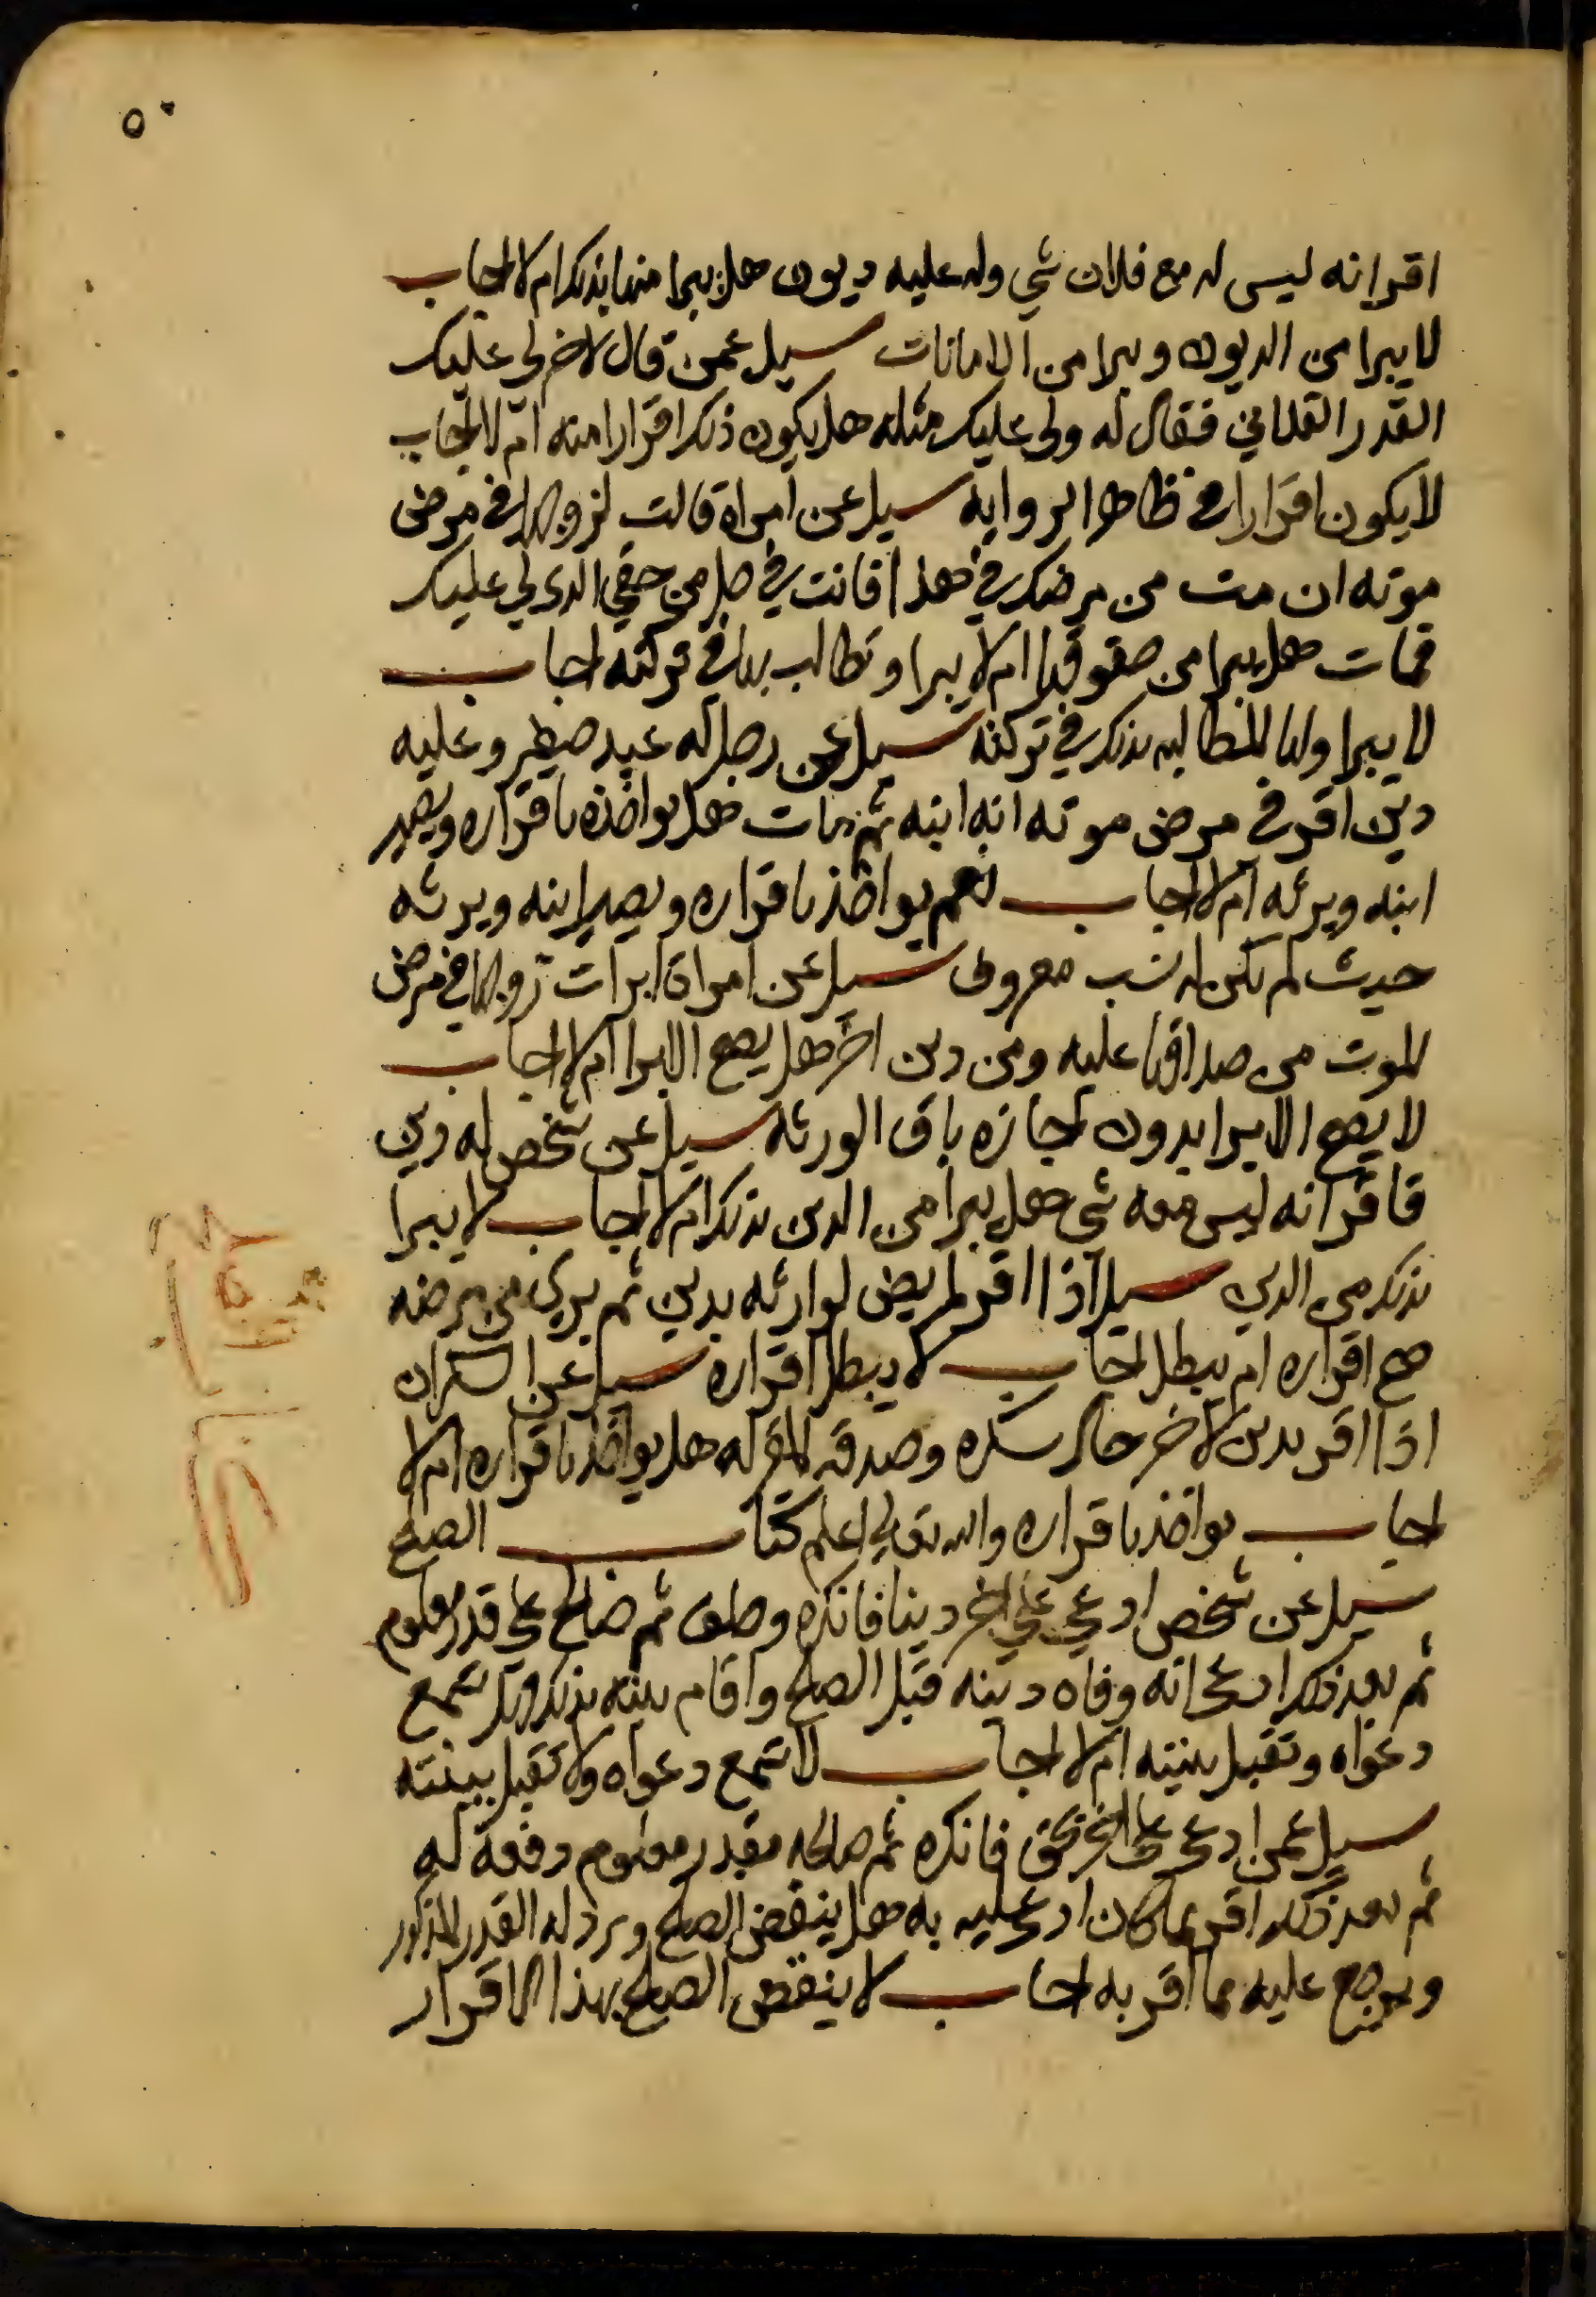 ٥٠
اقر انه ليس له مع فلان شي وله عليه ديون هل يبرا منها بذلك ام لا اجاب
لا يبرا من الديون ويبرا من الامانات سيل عمن قال لاخر لي عليك
القدر الفلاني فقال له ولي عليك مثله هل يكون ذلك اقرارا منه ام لا اجاب
لا يكون اقرارا في ظاهر الروايه سيل عن امراة قالت لزوجها في مرض
موته ان مت من مرضك في هذا فانت في حل من حقي الذي لي عليك
فمات هل يبرا من حقوقها ام لا يبرا وتطالب بها في تركته اجاب
لا يبرا ولها المطالبه بذلك في تركته سيل عن رجل له عبد صغير وعليه
دين اقر في مرض موته انه ابنه ثم مات هل يواخذه باقراره ويصير
ابنه ويرثه ام لا اجاب نعم يواخذ باقراره ويصير ابنه ويرثه
حيث لم تكن له نسب معروف سيل عن امراة ابرات زوجها في مرض
الموت من صداقها عليه ومن دين اخر هل يصح الابرا ام لا اجاب
لا يصح الابرا بدون اجازه باقي الورثه سيل عن شخص له دين
فاقر انه ليس معه شي هل يبرا من الدين بذلك ام لا اجاب لا يبرا
بذلك من الدين سيل اذا اقر المريض لوارثه بدين ثم بري من مرضه
صح اقراره ام يبطل اجاب لا يبطل اقراره سيل عن السكران
اذا اقر بدين لاخر حال سكره وصدقه المقر له هل يواخذ باقراره ام لا
اجاب يواخذ باقراره والله تعالي اعلم كتاب الصلح
سيل عن شخص ادعي علي اخر دينا فانكره وحلف ثم صالح علي قدر معلوم
ثم بعد ذلك ادعي انه وفاه دينه قبل الصلح واقام بينه بذلك هل تسمع
دعواه وتقبل بينته ام لا اجاب لا تسمع دعواه ولا تقبل بينته
سيل عمن ادعي علي اخر بحق فانكره ثم صالحه بقدر معلوم دفعه له
ثم بعد ذلك اقر بما كان ادعي عليه به هل ينقض الصلح ويرد له القدر المذكور
ويرجع عليه بما اقر به اجاب لا ينقض الصلح بهذا الاقرار
كتاب الصلح